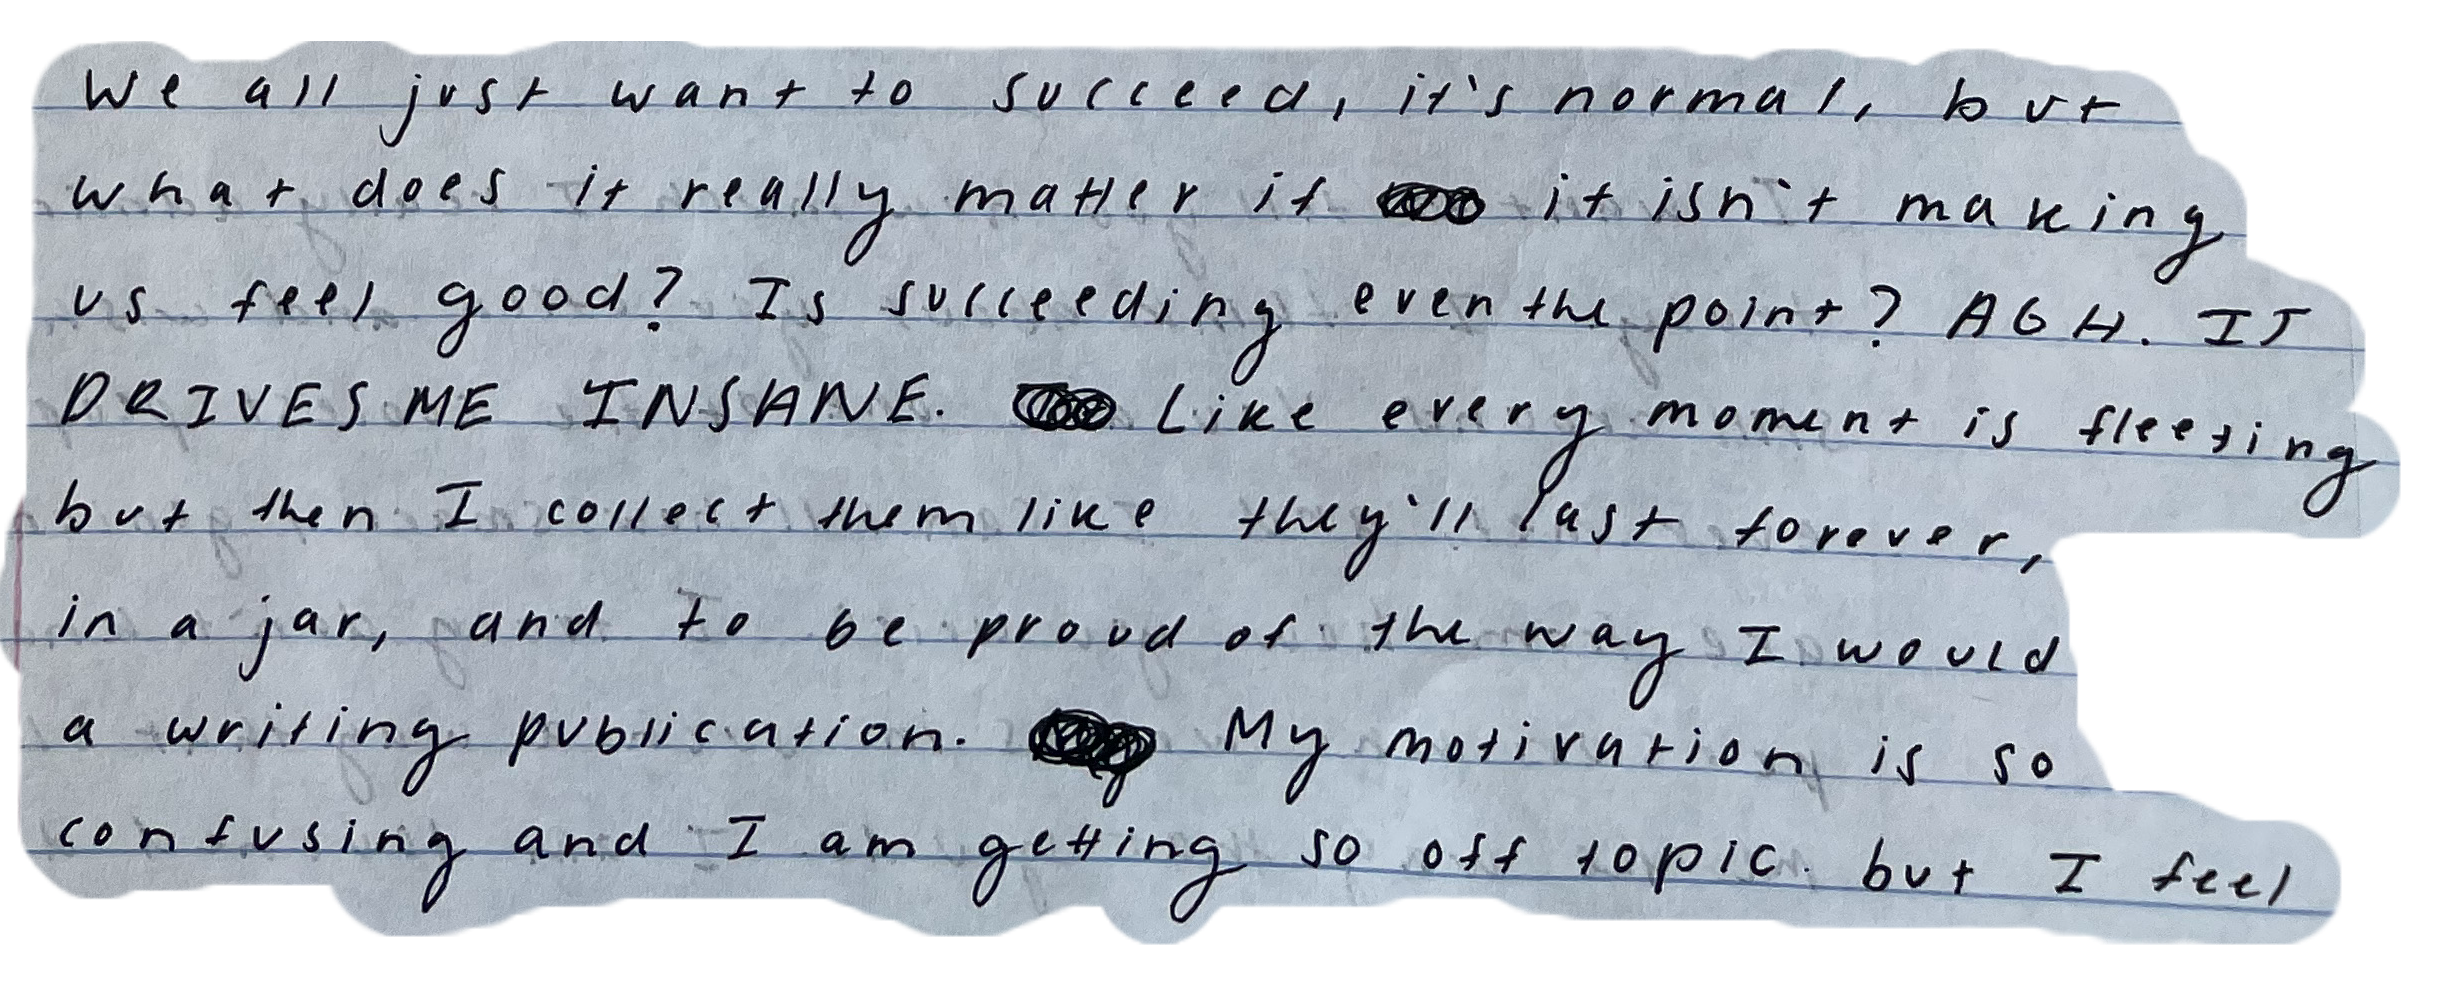 We all just want to succeed, it's normal, but
what does it really matter if it isn't making
us feel good? Is succeeding even the point? AGH. IT
DRIVES ME INSANE. Like every moment is fleeting
but then I collect them like they'll last forever,
in a jar, and to be proud of the way I would
a writing publication. My motivation is so
confusing and I am getting so off topic. but I feel